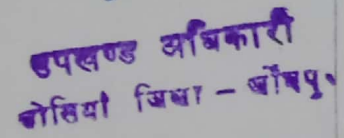 उपखण्ड अधिकारी
ओसियाँ जिला - जोधपुर